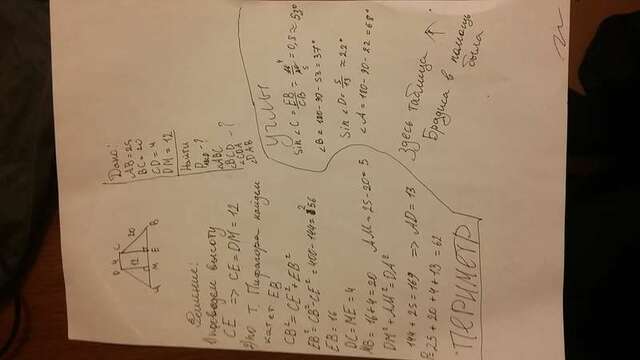 D 4 C
12 20
A M E B
Дано:
AB = 25
BC = 20
CD = 4
DM = 12
Найти
P - ?
∠ABC
∠BCD - ?
∠CDA
∠DAB
Решение:
1) проведем высоту
CE => CE = DM = 12
2) по т. Пифагора найдем
катет EB
CB² = CE² + EB²
EB² = CB² - CE² = 400 - 144 = 256
EB = 16
DC = ME = 4
MB = 16 + 4 = 20 AM = 25 - 20 = 5
DM² + AM² = DA²
144 + 25 = 169 => AD = 13
P = 25 + 20 + 4 + 13 = 62
ПЕРИМЕТР
УГЛЫ
Sin ∠C = EB/CB = 16/20 = 0,8 ≈ 53°
∠B = 180 - 90 - 53 = 37°
Sin ∠D = 5/13 ≈ 22°
∠A = 180 - 90 - 22 = 68°
Здесь таблица
Брадиса в помощь
была